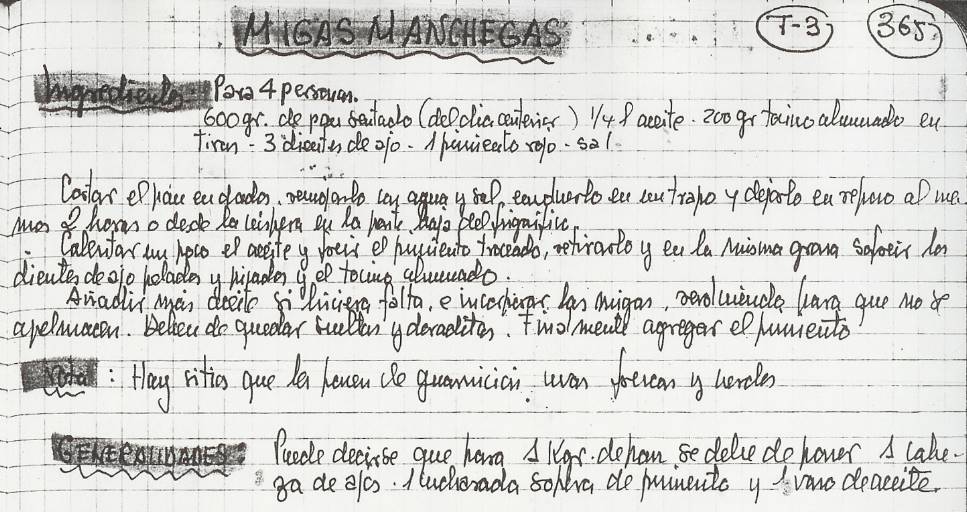 MIGAS MANCHEGAS T-3 365
Ingredientes Para 4 personas.
600 gr. de pan sentado (del dia anterior) 1/4 l aceite - 200 gr tocino ahumado en
tiras - 3 dientes de ajo - 1 pimiento rojo - sal
Cortar el pan en dados, remojarlo con agua y sal, envolverlo en un trapo y dejarlo en reposo al me-
nos 2 horas o desde la vispera en la parte baja del frigorifico.
Calentar un poco el aceite y freir el pimiento troceado, retirarlo y en la misma grasa sofreir los
dientes de ajo pelados y picados y el tocino ahumado.
Añadir más aceite si hiciera falta, e incorporar las migas, revolviendo para que no se
apelmacen. Deben de quedar sueltas y doraditas. Finalmente agregar el pimiento
Nota: Hay sitios que les ponen de guarnicion uvas frescas y verdes
GENERALIDADES: Puede decirse que para 1 Kgr. de pan se debe de poner 1 cabe-
za de ajos. 1 cucharada sopera de pimiento y 1 vaso de aceite.